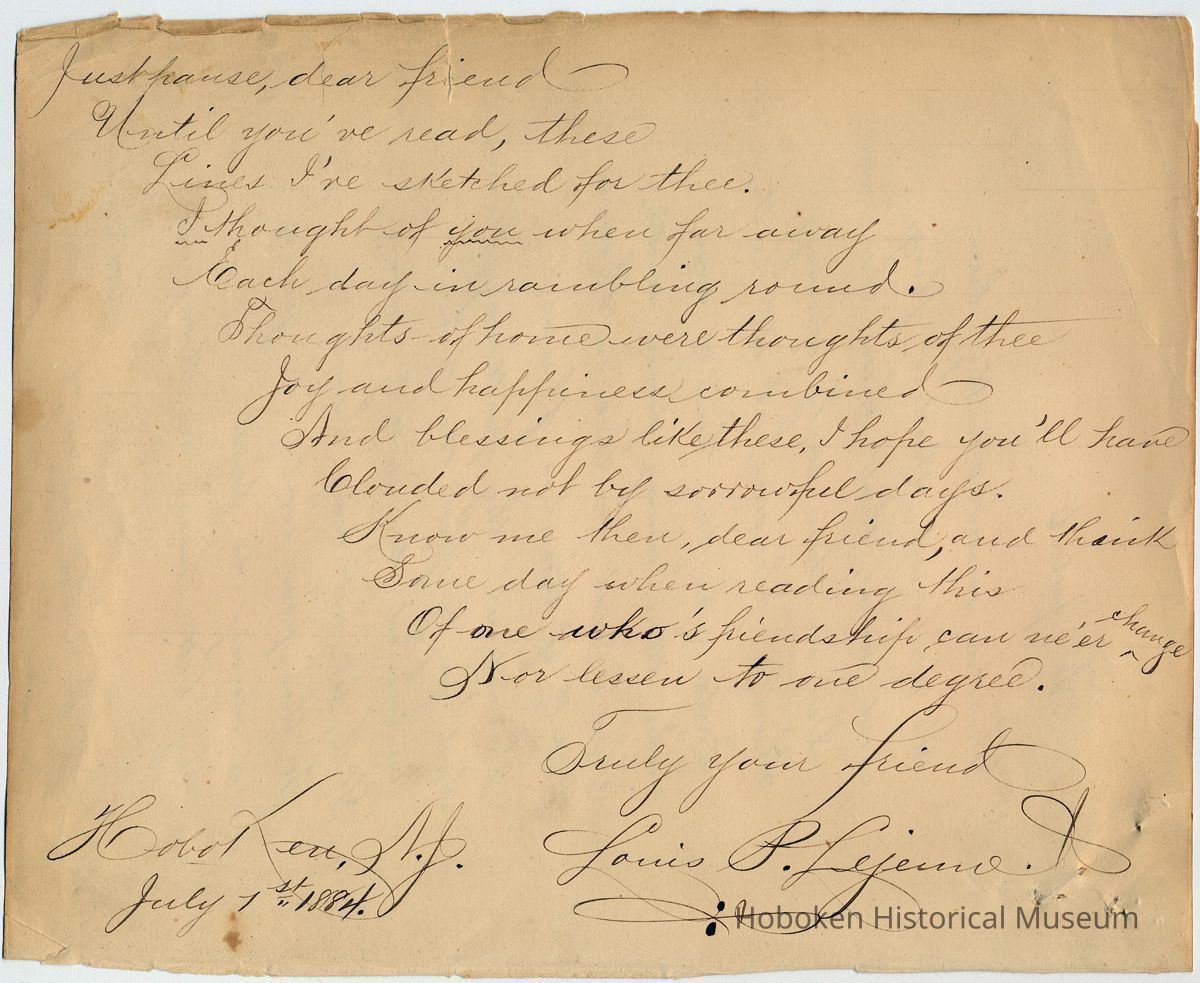 Just pause, dear friend
Until you've read, these
Lines I've sketched for thee.
I thought of you when far away
Each day in rambling round.
Thoughts of home were thoughts of thee
Joy and happiness combined
And blessings like these, I hope you'll have
Clouded not by sorrowful days.
Know me then, dear friend, and think
Some day when reading this
Of one who's friendship can ne'er change
Nor lessen to one degree.
Truly your friend
Louis P. Lejeune.
Hoboken, N.J.
July 1st 1884.
Hoboken Historical Museum